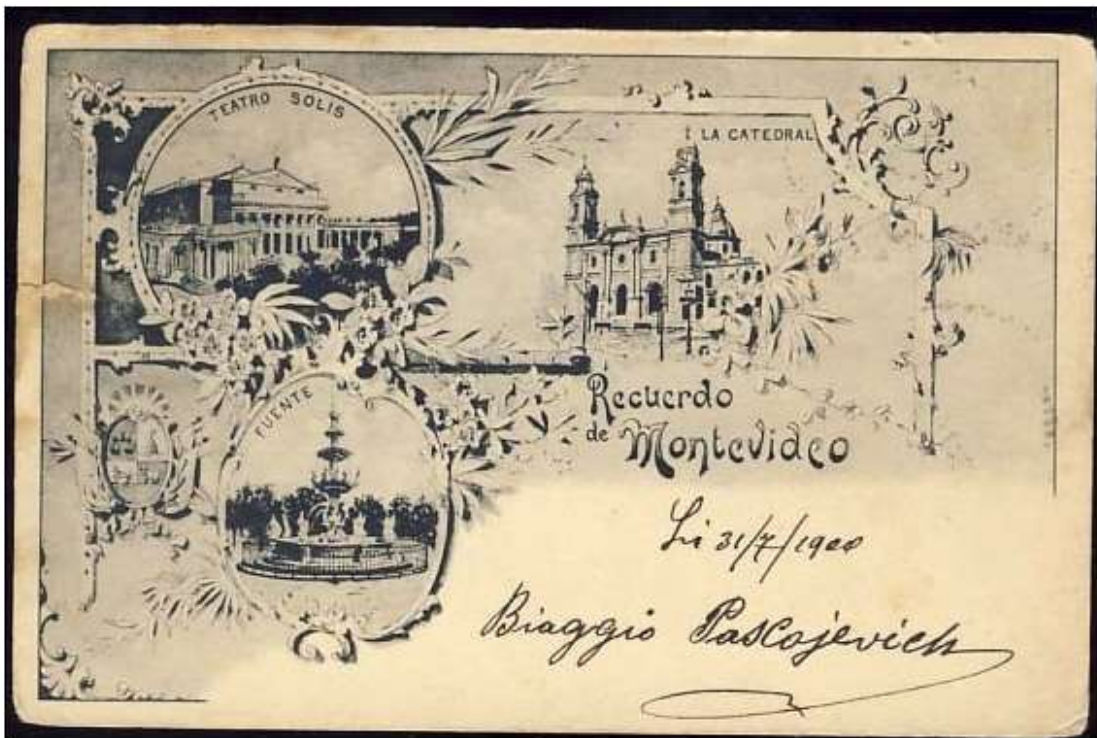 TEATRO SOLIS
LA CATEDRAL
FUENTE
Recuerdo
de Montevideo
Li 31/7/1900
Biaggio Pascojevich